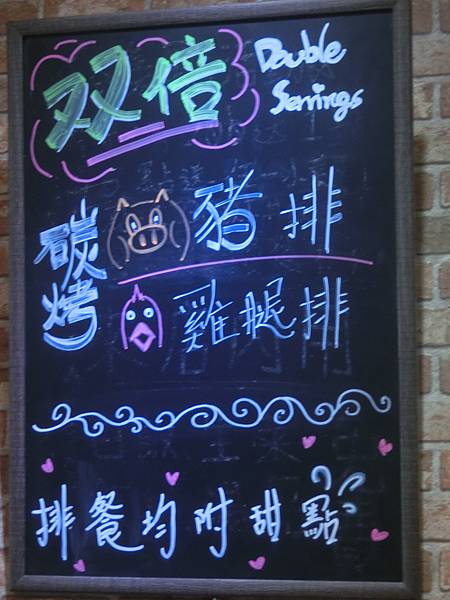 双倍 Double
Servings
碳烤 豬排
雞腿排
排餐均附甜點